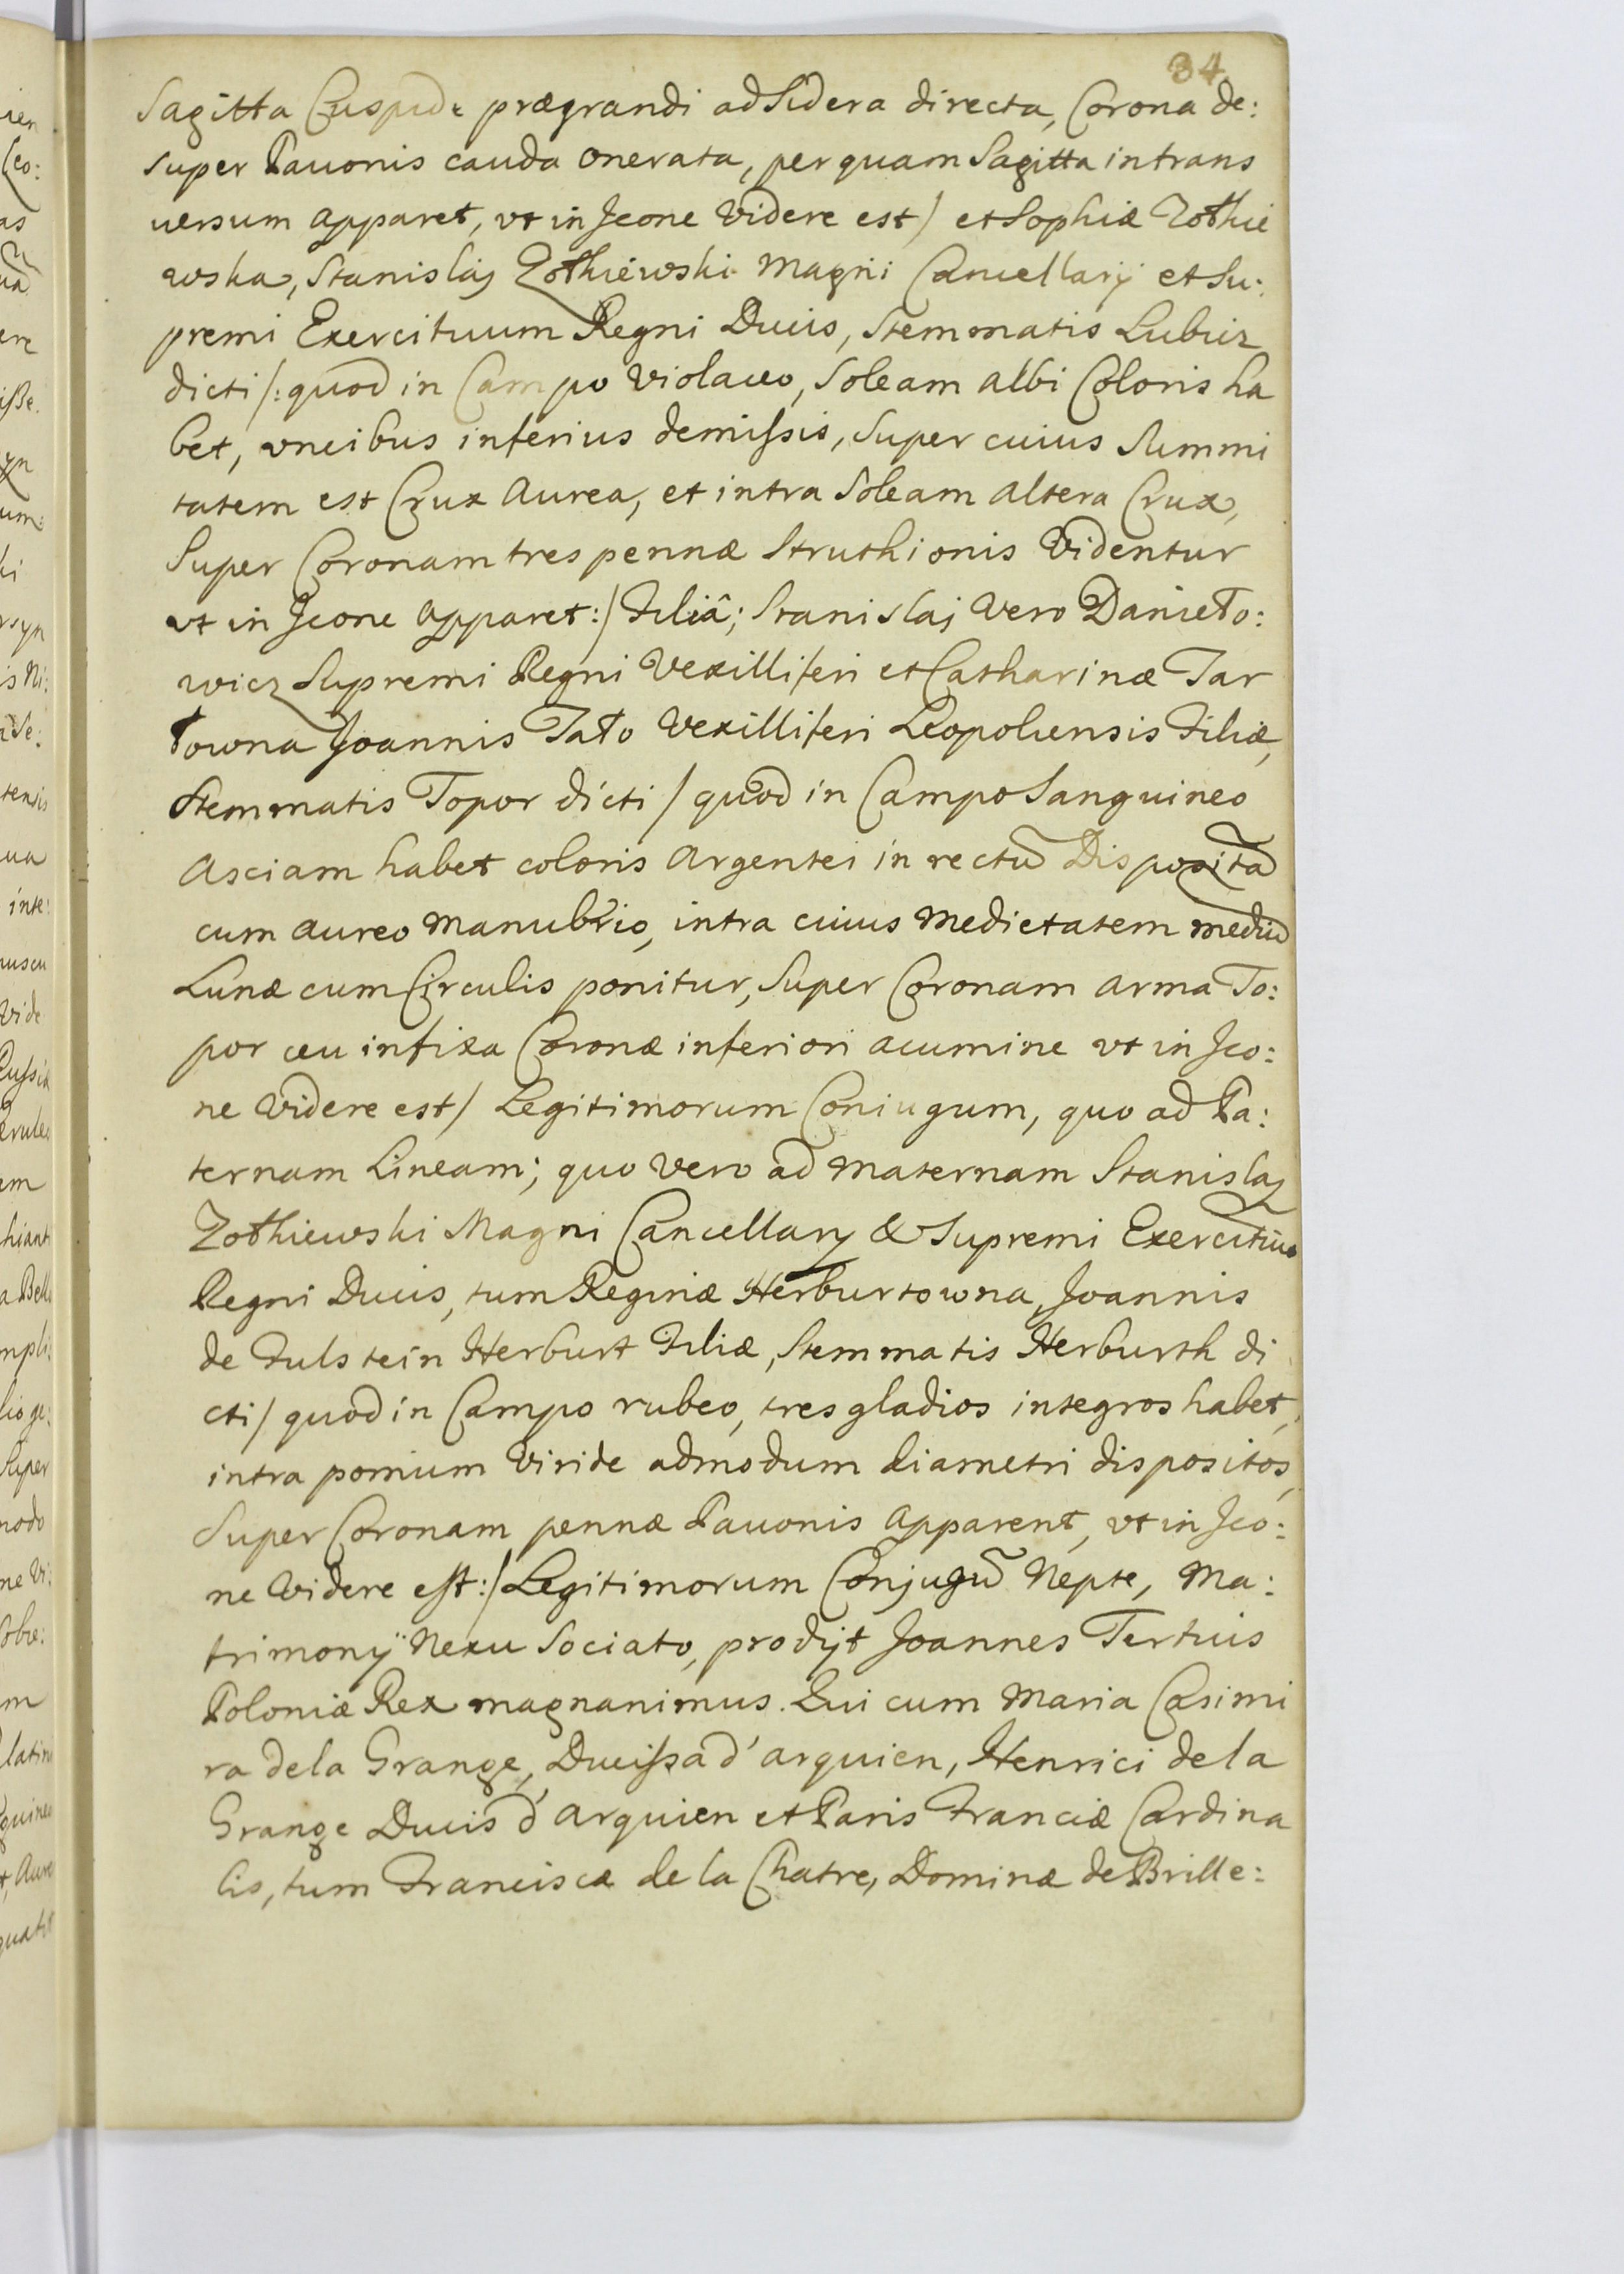 34
Sagitta Cuspide prægrandi ad Sidera directa, Corona de:
super Pauonis cauda onerata, per quam Sagitta in trans
uersum apparet, vt in Jcone Videre est/ et Sophiæ Żołkie
wska, Stanislaj Żołkiewski Magni Cancellarij et Su:
premi Exercituum Regni Ducis, Stemmatis Lubicz
dicti /: quod in Campo Violaceo, Soleam albi Coloris ha
bet, vncibus inferius demiſsis, Super cuius Summi
tatem est Crux Aurea, et intra Soleam altera Crux,
Super Coronam tres pennæ Struthionis Videntur
vt in Jcone apparet :/ Filiâ; Stanislaj Vero Danieło:
wicz Supremi Regni Vexilliferi et Catharinæ Tar
łowna Joannis Tało Vexilliferi Leopoliensis Filiæ,
Stemmatis Topor dicti / quod in Campo Sanguineo
Asciam habet coloris Argentei in rectũ Dispositã
cum aureo Manubrio, intra cuius Medietatem mediũ
Lunæ cum Circulis ponitur, Super Coronam arma To:
por ceu infixa Coronæ inferiori acumine vt in Jco:
ne Videre est/ Legitimorum Coniugum, quo ad Pa:
ternam Lineam; quo Vero ad Maternam Stanislaj
Żołkiewski Magni Cancellarij & Supremi Exercitũũ
Regni Ducis, tum Reginæ Herburtowna, Joannis
de Fulstein Herburt Filiæ, Stemmatis Herburth di
cti/ quod in Campo rubeo, tres gladios integros habet,
intra pomum Viride admodum diametri dispositos,
Super Coronam pennæ Pauonis apparent, vt in Jco:
ne Videre est :/ Legitimorum Conjugũ Nepte, Ma:
trimonij Nexu Sociato, prodijt Joannes Tertius
Poloniæ Rex magnanimus. Qui cum Maria Casimi
ra dela Grange, Duciſsa d'arquien, Henrici de la
Grange Ducis d'Arquien et Paris Franciæ Cardina
lis, tum Franciscæ de la Chatre, Dominæ de Brille: